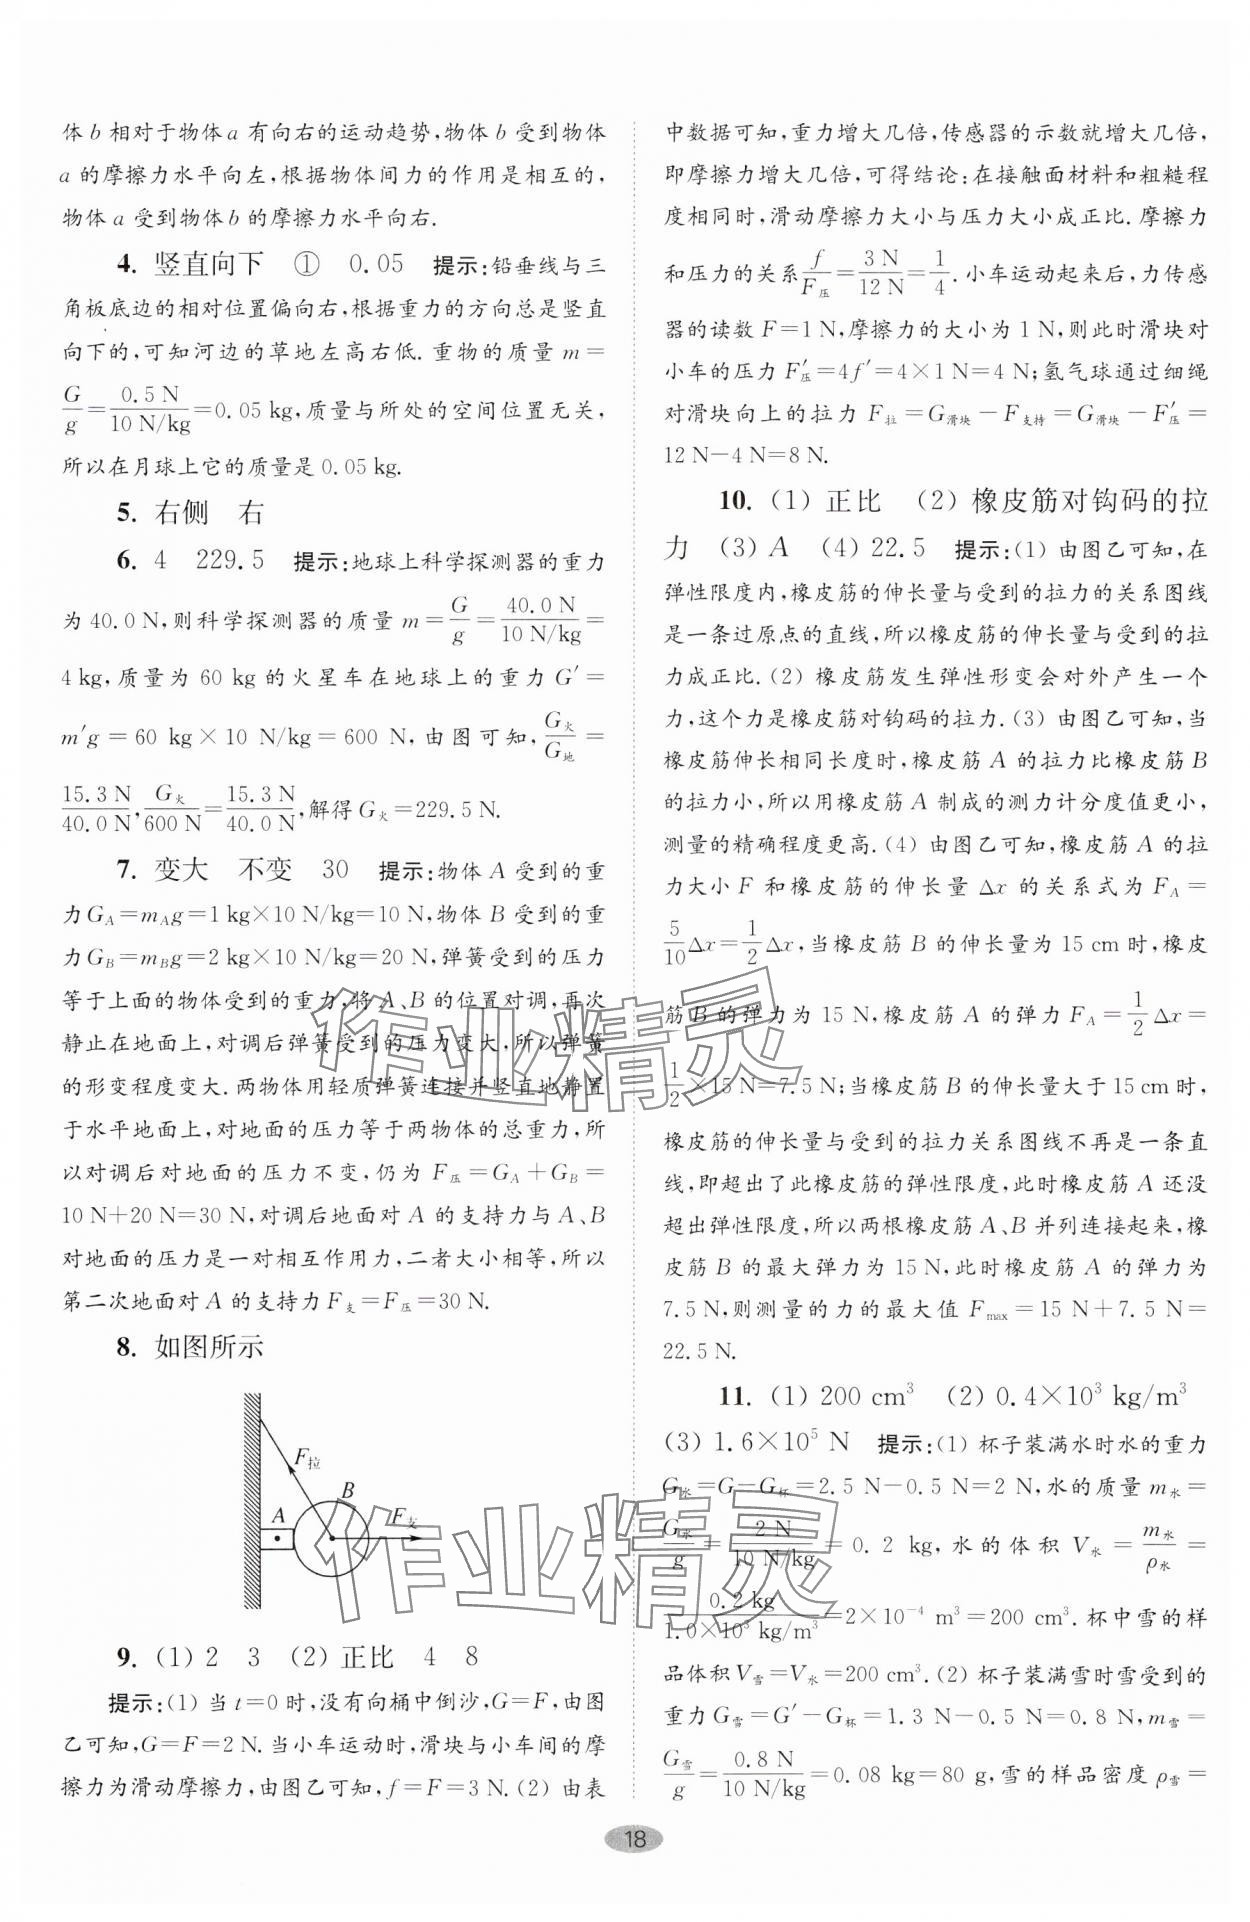 体b相对于物体a有向右的运动趋势,物体b受到物体
a的摩擦力水平向左,根据物体间力的作用是相互的,
物体a受到物体b的摩擦力水平向右.
4. 竖直向下 ① 0.05 提示:铅垂线与三
角板底边的相对位置偏向右,根据重力的方向总是竖直
向下的,可知河边的草地左高右低.重物的质量 m=
G/g=0.5 N/10 N/kg=0.05 kg,质量与所处的空间位置无关,
所以在月球上它的质量是0.05 kg.
5. 右侧 右
6. 4 229.5 提示:地球上科学探测器的重力
为40.0 N,则科学探测器的质量 m=G/g=40.0 N/10 N/kg=
4 kg,质量为 60 kg 的火星车在地球上的重力 G′=
m′g=60 kg×10 N/kg=600 N,由图可知,G火/G地=
15.3 N/40.0 N,G火/600 N=15.3 N/40.0 N,解得G火=229.5 N.
7. 变大 不变 30 提示:物体A受到的重
力GA=mAg=1 kg×10 N/kg=10 N,物体B受到的重
力GB=mBg=2 kg×10 N/kg=20 N,弹簧受到的压力
等于上面的物体受到的重力,将A、B的位置对调,再次
静止在地面上,对调后弹簧受到的压力变大,所以弹簧
的形变程度变大.两物体用轻质弹簧连接并竖直地静置
于水平地面上,对地面的压力等于两物体的总重力,所
以对调后对地面的压力不变,仍为 F压=GA+GB=
10 N+20 N=30 N,对调后地面对A的支持力与A、B
对地面的压力是一对相互作用力,二者大小相等,所以
第二次地面对A的支持力F支=F压=30 N.
8. 如图所示
F拉
B
A
F支
9. (1) 2 3 (2) 正比 4 8
提示:(1) 当t=0时,没有向桶中倒沙,G=F,由图
乙可知,G=F=2 N.当小车运动时,滑块与小车间的摩
擦力为滑动摩擦力,由图乙可知,f=F=3 N.(2) 由表
中数据可知,重力增大几倍,传感器的示数就增大几倍,
即摩擦力增大几倍,可得结论:在接触面材料和粗糙程
度相同时,滑动摩擦力大小与压力大小成正比.摩擦力
和压力的关系f/F压=3 N/12 N=1/4.小车运动起来后,力传感
器的读数F=1 N,摩擦力的大小为1 N,则此时滑块对
小车的压力F′压=4f′=4×1 N=4 N;氢气球通过细绳
对滑块向上的拉力 F拉=G滑块-F支持=G滑块-F′压=
12 N-4 N=8 N.
10. (1) 正比 (2) 橡皮筋对钩码的拉
力 (3) A (4) 22.5 提示:(1) 由图乙可知,在
弹性限度内,橡皮筋的伸长量与受到的拉力的关系图线
是一条过原点的直线,所以橡皮筋的伸长量与受到的拉
力成正比.(2) 橡皮筋发生弹性形变会对外产生一个
力,这个力是橡皮筋对钩码的拉力.(3) 由图乙可知,当
橡皮筋伸长相同长度时,橡皮筋A的拉力比橡皮筋B
的拉力小,所以用橡皮筋A制成的测力计分度值更小,
测量的精确程度更高.(4) 由图乙可知,橡皮筋A的拉
力大小F和橡皮筋的伸长量Δx的关系式为FA=
5/10Δx=1/2Δx,当橡皮筋B的伸长量为15 cm时,橡皮
筋B的弹力为15 N,橡皮筋A的弹力FA=1/2Δx=
1/2×15 N=7.5 N;当橡皮筋B的伸长量大于15 cm时,
橡皮筋的伸长量与受到的拉力关系图线不再是一条直
线,即超出了此橡皮筋的弹性限度,此时橡皮筋A还没
超出弹性限度,所以两根橡皮筋A、B并列连接起来,橡
皮筋B的最大弹力为15 N,此时橡皮筋A的弹力为
7.5 N,则测量的力的最大值 Fmax=15 N+7.5 N=
22.5 N.
11. (1) 200 cm³ (2) 0.4×10³ kg/m³
(3) 1.6×10⁵ N 提示:(1) 杯子装满水时水的重力
G水=G-G杯=2.5 N-0.5 N=2 N,水的质量m水=
G水/g=2 N/10 N/kg=0.2 kg,水的体积V水=m水/ρ水=
0.2 kg/1.0×10³ kg/m³=2×10⁻⁴ m³=200 cm³.杯中雪的样
品体积V雪=V水=200 cm³.(2) 杯子装满雪时雪受到的
重力G雪=G′-G杯=1.3 N-0.5 N=0.8 N,m雪=
G雪/g=0.8 N/10 N/kg=0.08 kg=80 g,雪的样品密度ρ雪=
18
作业精灵
作业精灵